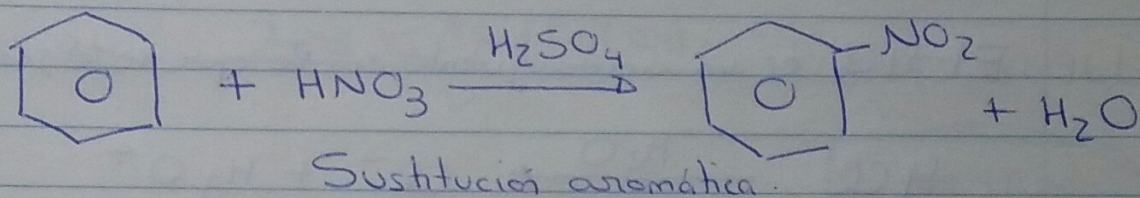 H₂SO₄
+ HNO₃ → NO₂
+ H₂O
Sustitución aromática.